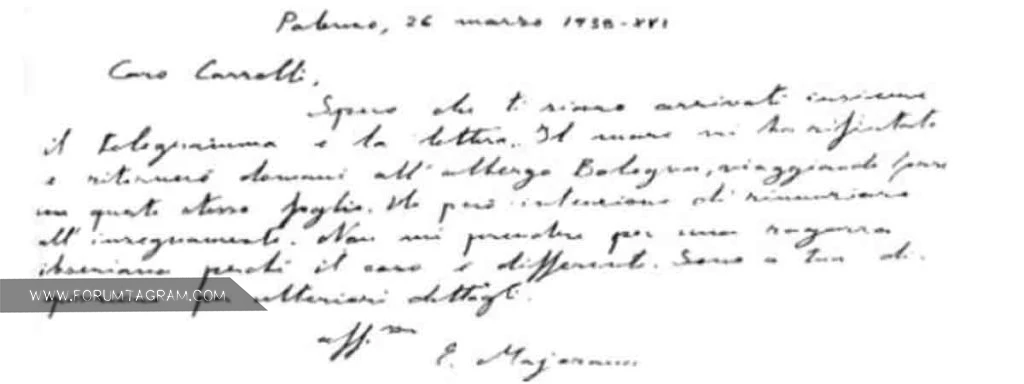 Palermo, 26 marzo 1938-XVI
Caro Carrelli,
Spero che ti siano arrivati insieme
il telegramma e la lettera. Il mare mi ha rifiutato
e ritornerò domani all'albergo Bologna, viaggiando forse
con questo stesso foglio. Ho però intenzione di rinunciare
all'insegnamento. Non mi prendere per una ragazza
ibseniana perché il caso è differente. Sono a tua di-
per ulteriori dettagli.
aff.mo
E. Majorana
WWW.FORUMTAGRAM.COM